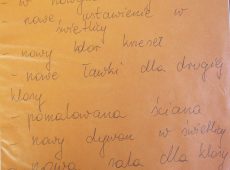 - nowe ustawienie w
świetlicy
- nowy kolor krzeseł
- nowe ławki dla drugiej
klasy
- pomalowana ściana
- nowy dywan w świetlicy
- nowa sala dla klasy